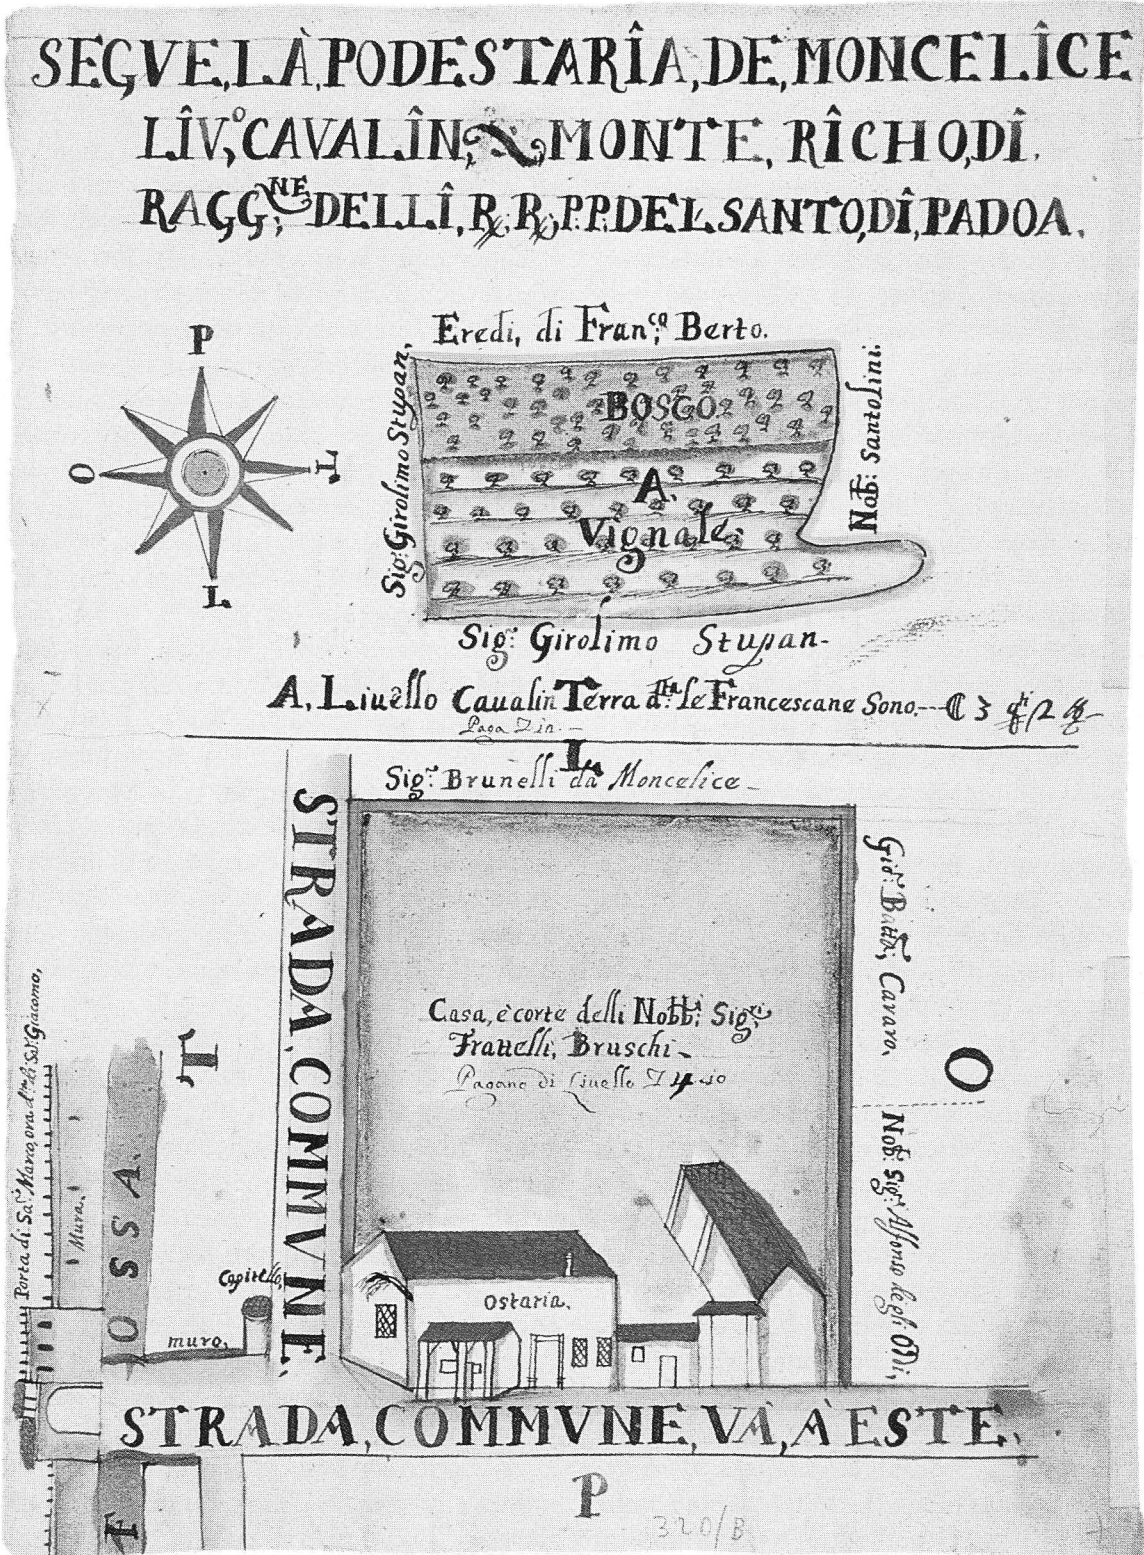 SEGVE, LÀ, PODESTARÎA, DE, MONCELÎCE
LÎV,º CAVALÎN, MONTE, RÎCHO, DÎ.
RAGG;NE DELLÎ, R.R. P.P. DEL SANTO, DÎ, PADOA.
P
O
T
L
Eredi, di Fran;co Berto.
Sig:r Girolimo Stupan,
Nob: Santolini.
BOSCO
A.
Vignale
Sig:r Girolimo Stupan-
A, Liuello Caualin Terra d.ta le Francescane Sono.--- C 3
Paga
L
Sig:r Brunelli da Moncelice-
STRADA, COMMVNE,
Casa, è corte delli Nobb:i Sig:ri
Frattelli, Bruschi-
Pagano di Liuello
Gio: Batta; Cavaro,
O
Nob: Sig:r Alfonso degli Odi,
T
Porta di Sa:n Marco, ora d:ta di Sa:n Giacomo,
Mura,
FOSSA.
Capitello,
muro,
Ostaria,
STRADA, COMMVNE, VÀ, À ESTE,
P
320/B